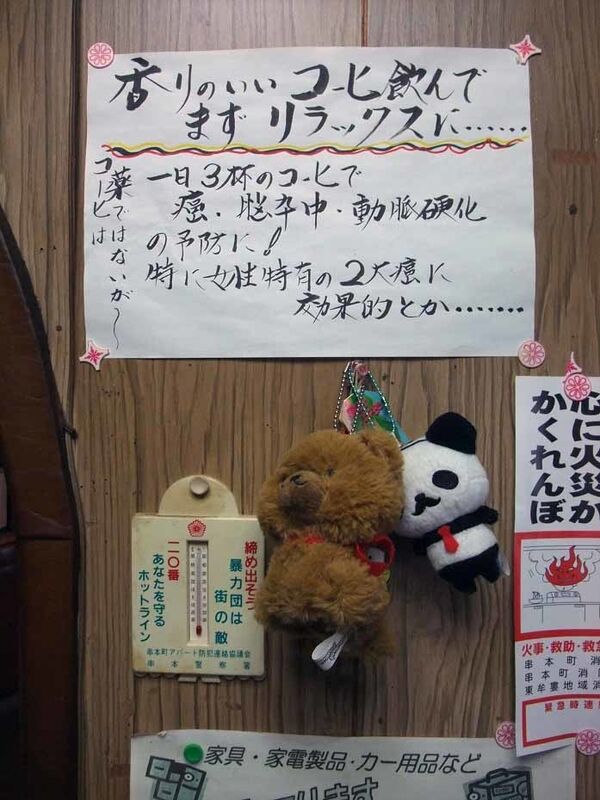 香りのいいコーヒ飲んで
まずリラックスに……
コーヒは
薬ではないが〜
一日3杯のコーヒで
癌・脳卒中・動脈硬化
の予防に!
特に女性特有の2大癌に
効果的とか……
締め出そう
暴力団は
街の敵
一一〇番
あなたを守る
ホットライン
串本町アパート防犯連絡協議会
串本警察署
心に火災が
かくれんぼ
火事・救助・救急
串本町消
串本町消
東牟婁地域消
緊急時連
家具・家電製品・カー用品など
ります